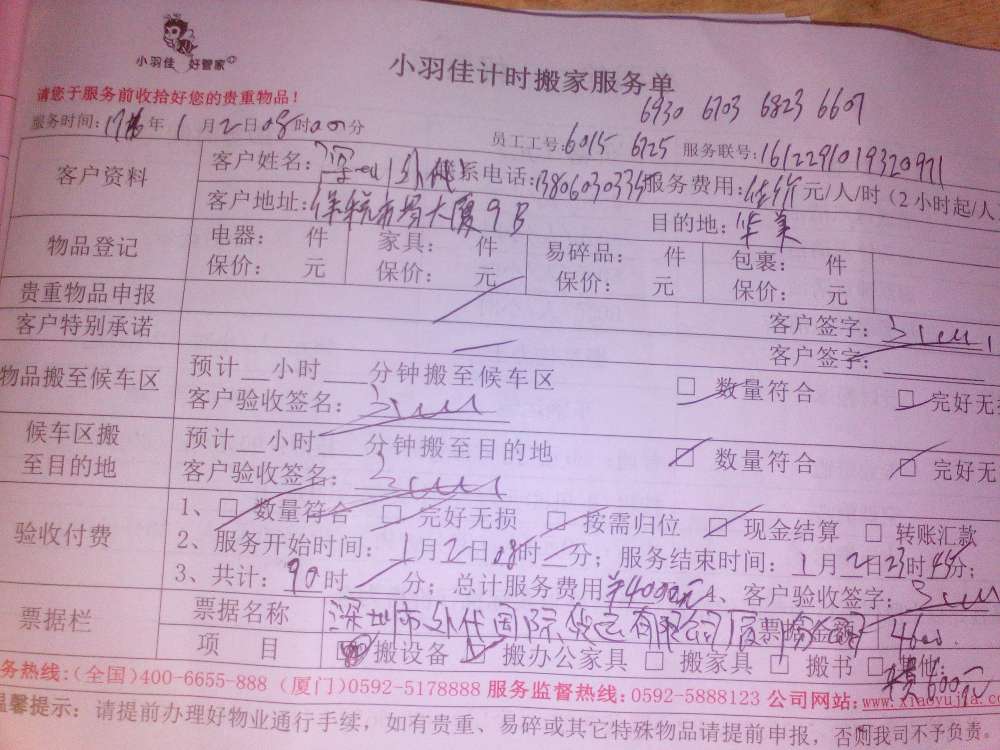 小羽佳 好管家
小羽佳计时搬家服务单
请您于服务前收拾好您的贵重物品!
6930 6703 6823 6607
服务时间:17年1月2日08时00分
员工工号:6015 6725 服务联号:1612291019320971
客户资料
客户姓名:深圳外代 联系电话:13806030335 服务费用:估价元/人/时(2小时起/人
客户地址:保税市场大厦9B 目的地:华美
物品登记
电器: 件 家具: 件 易碎品: 件 包裹: 件
保价: 元 保价: 元 保价: 元 保价: 元
贵重物品申报 客户签字:
客户特别承诺 客户签字:
物品搬至候车区
预计__小时___分钟搬至候车区 □ 数量符合 □ 完好无
客户验收签名:
候车区搬
至目的地
预计__小时___分钟搬至目的地 □ 数量符合 □ 完好无
客户验收签名:
验收付费
1、□ 数量符合 □ 完好无损 □ 按需归位 □ 现金结算 □ 转账汇款
2、服务开始时间:1月2日08时 分;服务结束时间:1月2日23时45分;
3、共计:90时 分;总计服务费用¥4000元 4、客户验收签字:
票据栏
票据名称 深圳市外代国际货运有限公司厦 票据金额 4600.
项 目 搬设备 □ 搬办公家具 □ 搬家具 □ 搬书 □ 其他: 600元
务热线:(全国)400-6655-888 (厦门)0592-5178888 服务监督热线:0592-5888123 公司网站:www.xiaoyujia.co
温馨提示:请提前办理好物业通行手续,如有贵重、易碎或其它特殊物品请提前申报,否则我司不予负责。